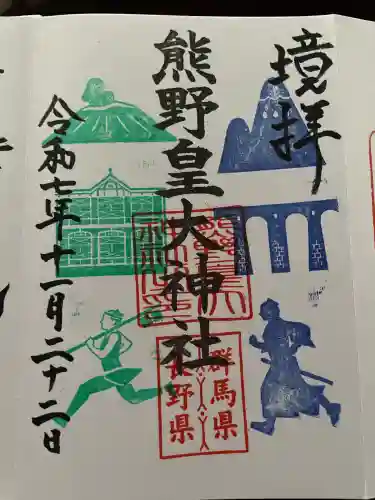 境拝
熊野皇大神社
令和七年十一月二十二日
群馬県
長野県